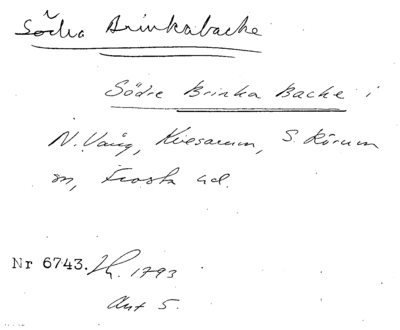 Södra Brinkabacke
Södre Brinka Backe i
N. Vång, Kvesarum, S. Rörum
sn, Frosta hd.
Nr 6743. Lh. 1793
Akt 5.